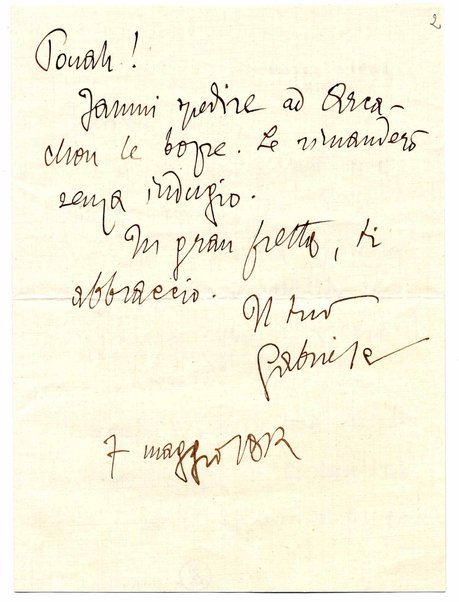 2
!
Fammi spedire ad Arca-
chon le bozze. Le rimanderò
senza indugio.
In gran fretta, ti
abbraccio.
Il tuo
Gabriele
7 maggio 1912